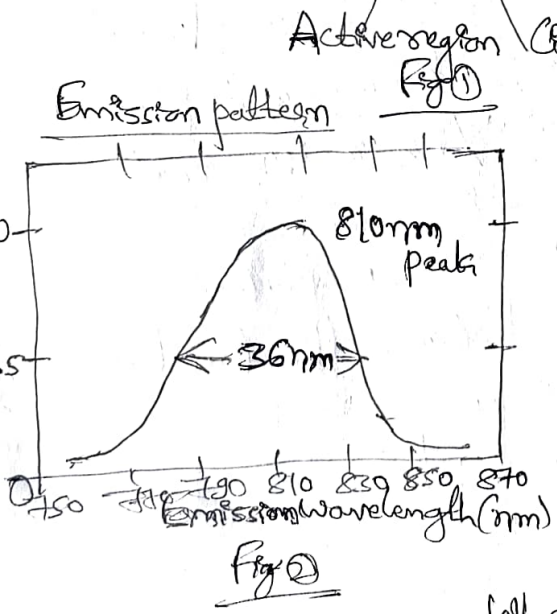 Active region
Fig ①
Emission pattern
810nm
peak
36nm
0
750 770 790 810 830 850 870
Emission wavelength (nm)
Fig ②